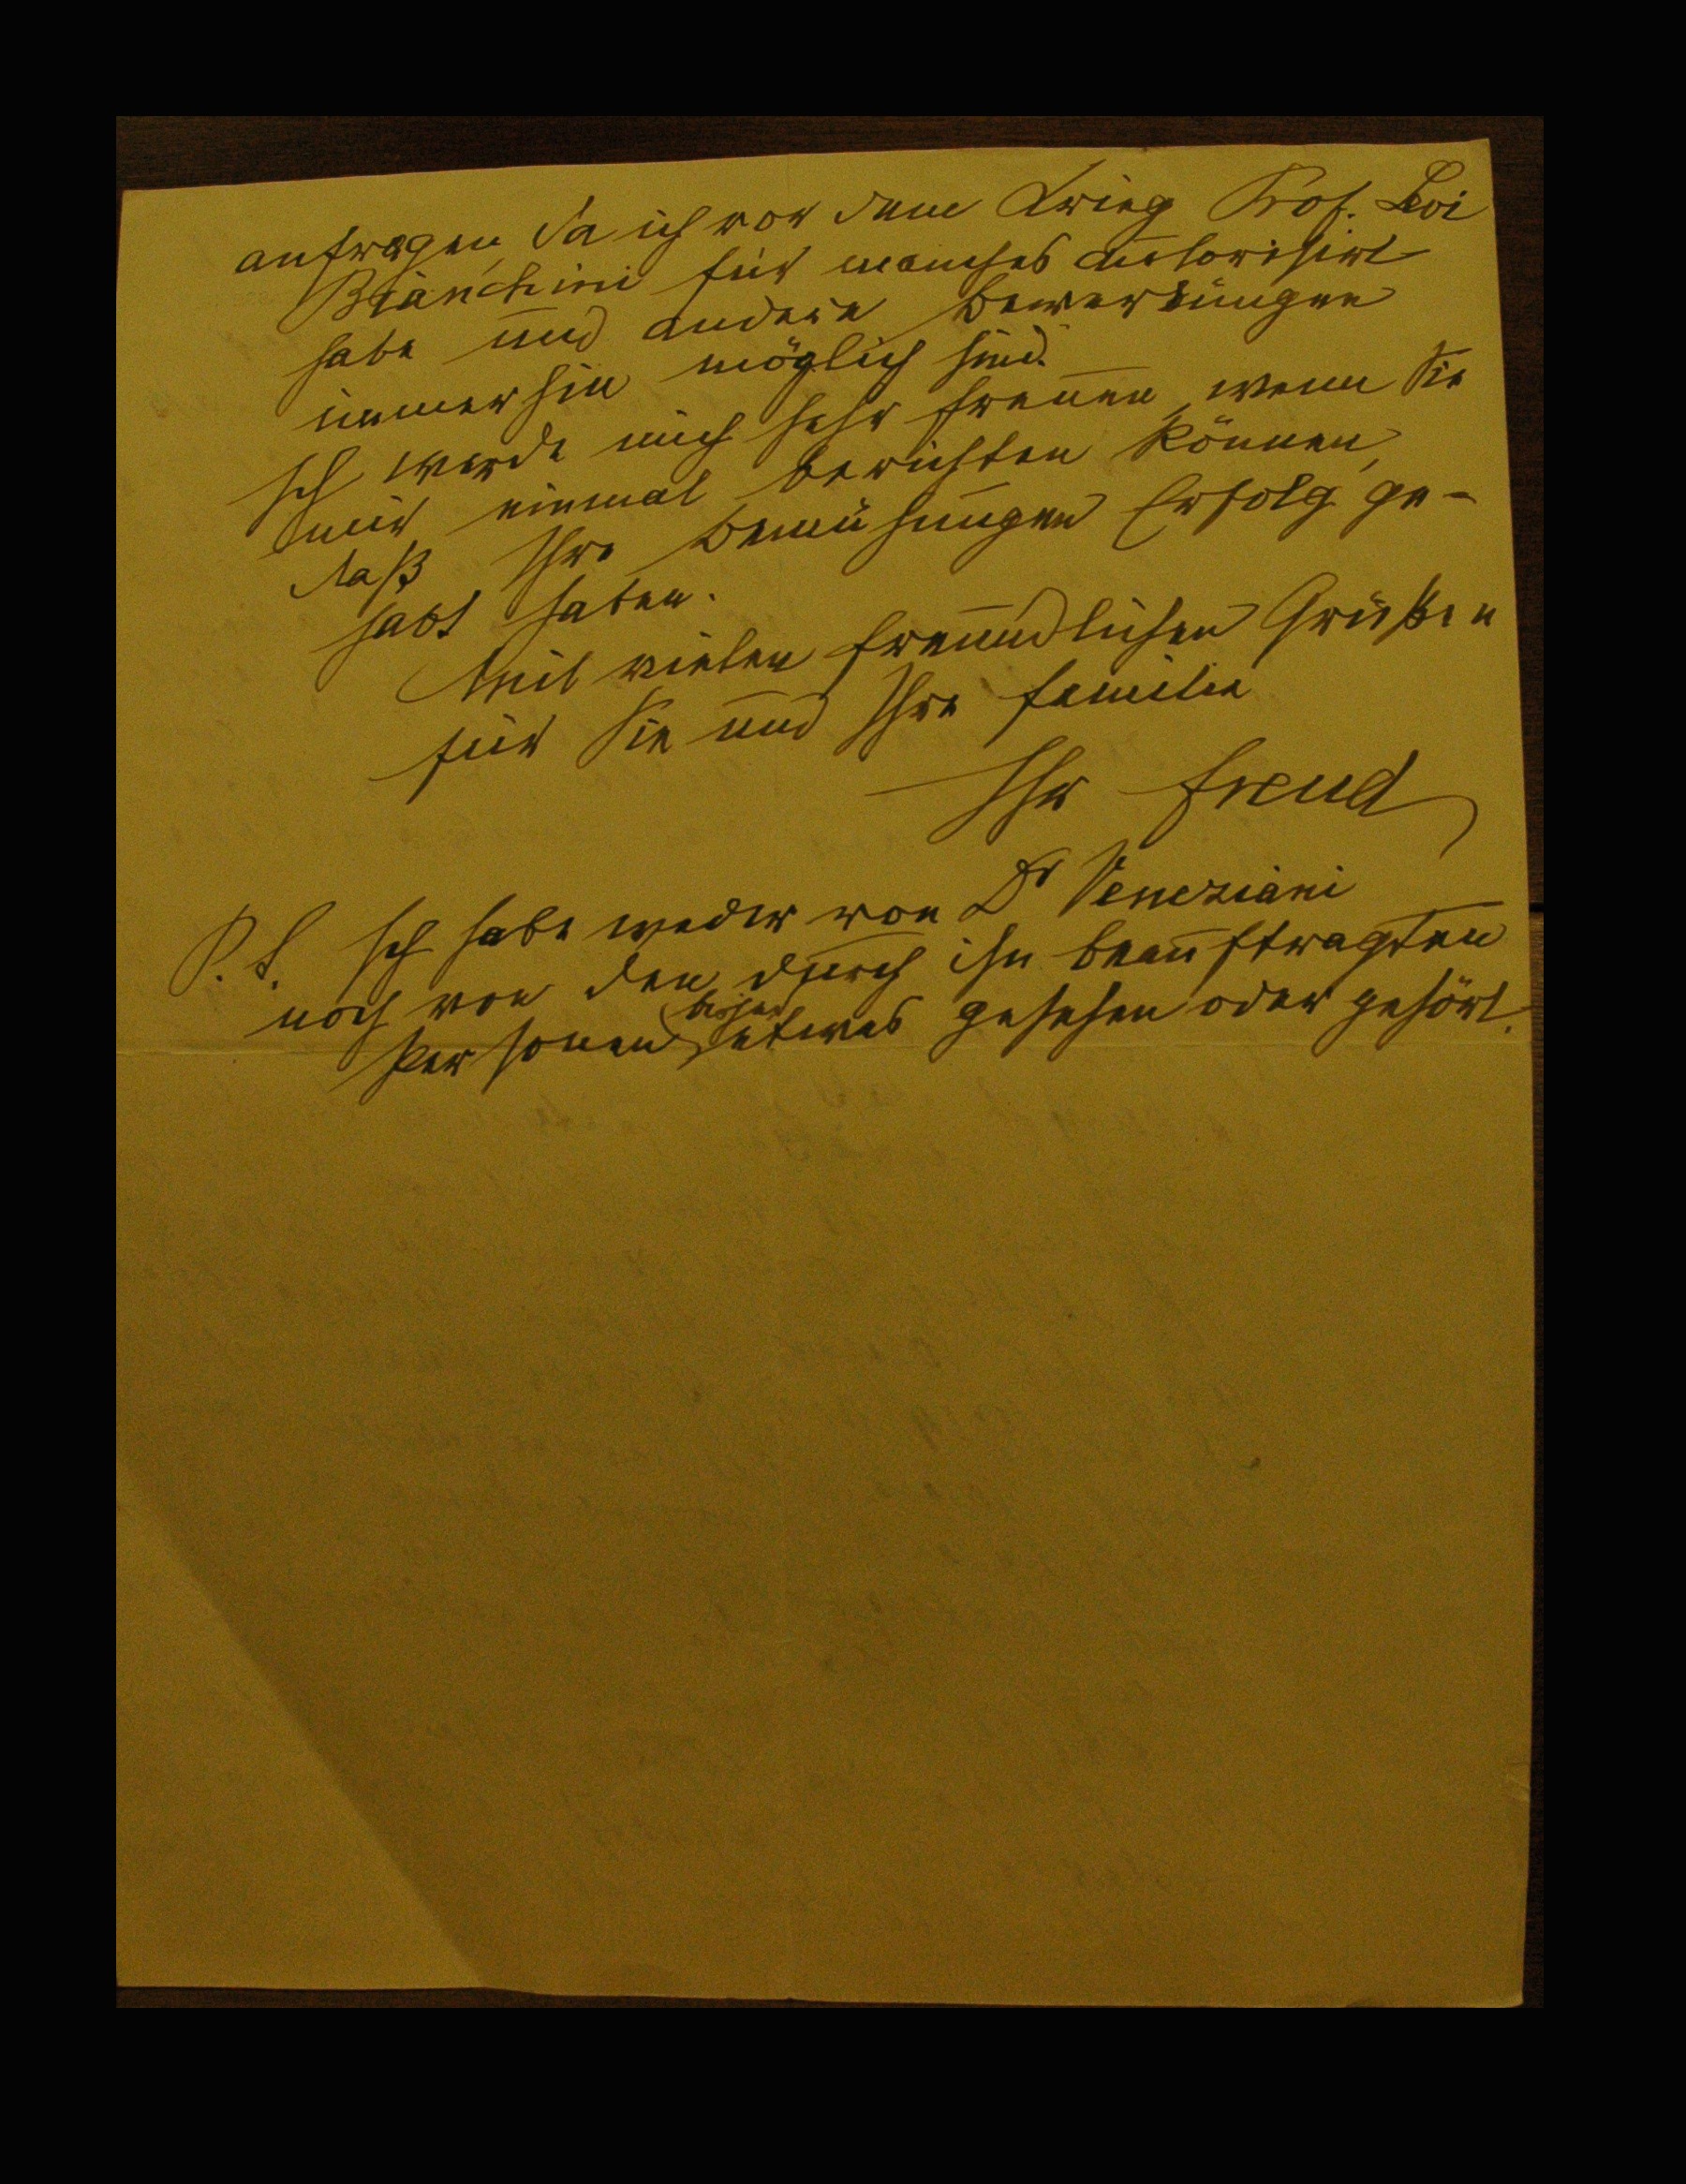 anfragen, da ich vor dem Krieg Prof. Levi
Bianchini für manches autorisirt
habe und andere Bewerbungen
immerhin möglich sind.
Ich werde mich sehr freuen, wenn Sie
mir einmal berichten können,
daß Ihre Bemühungen Erfolg ge-
habt haben.
Mit vielen freundlichen Grüßen
für Sie und Ihre Familie
Ihr Freud
P.S. Ich habe weder von Dr Veneziani
noch von den durch ihn beauftragten
Personen bisher etwas gesehen oder gehört.